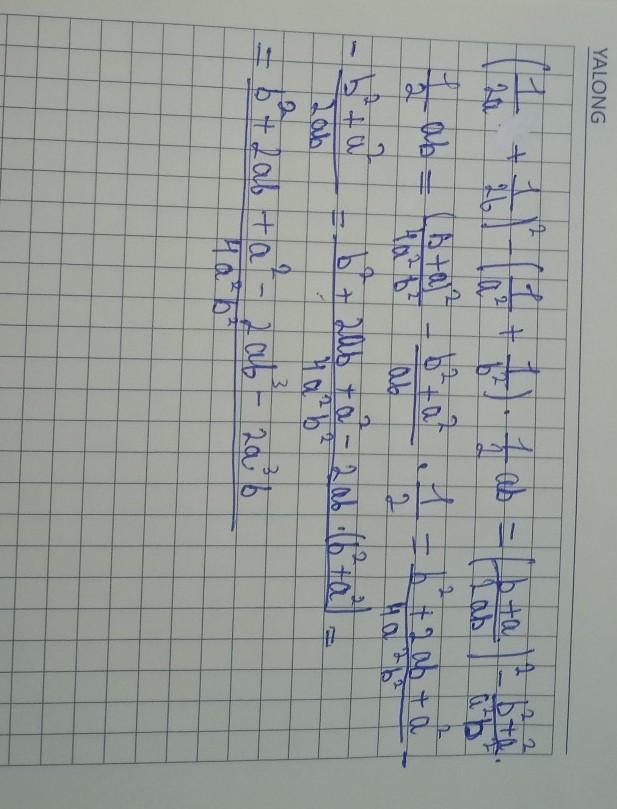 YALONG
(1/2a + 1/2b)² - (1/a² + 1/b²) · 1/2 ab = ((b+a)/2ab)² - (b²+a²)/(a²b²) ·
1/2 ab = (b+a)²/(4a²b²) - (b²+a²)/ab · 1/2 = (b²+2ab+a²)/(4a²b²) -
- (b²+a²)/2ab = (b²+2ab+a²-2ab·(b²+a²))/(4a²b²) =
= (b²+2ab+a²-2ab³-2a³b)/(4a²b²)